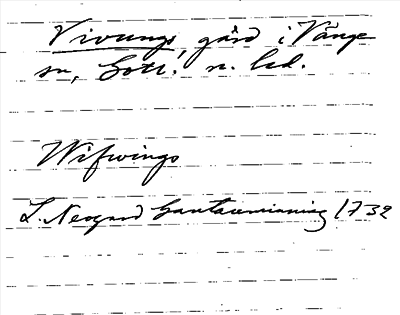 Vivungs, gård i Vänge
sn, Gotl. n. led.
Wifwings
L. Neogard Gautauminning 1732